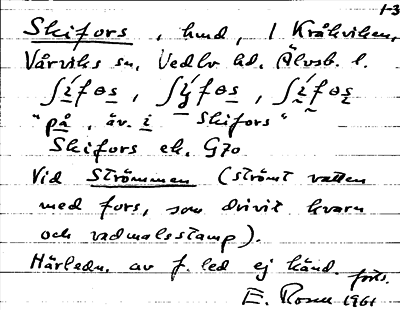 1-3
Skifors, hmd, i Kråkviken,
Värviks sn, Vedbo hd. Älvsb. l.
ʃífɵs, ʃýfɵs, ʃífɵs
"på, äv. i Skifors"
Skifors ek. G70
Vid Strömmen (strömt vatten
med fors, som drivit kvarn
och vadmalsstamp).
Härledn. av f. led ej känd.
forts.
E. Rosen 1961